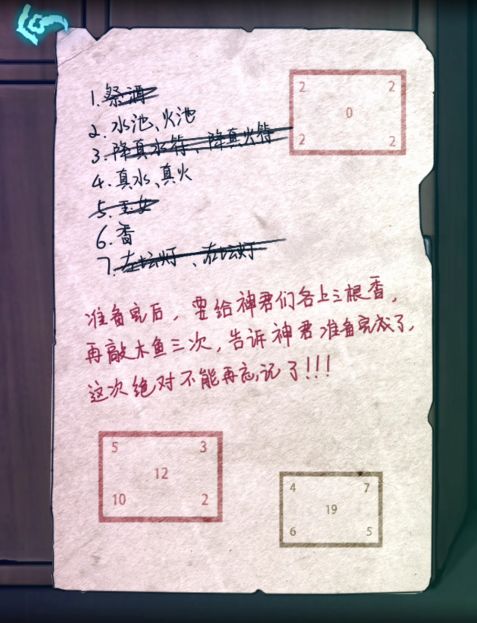 2 2
0
2 2
1. 祭酒
2. 水池、火池
3. 降真水符、降真火符
4. 真水、真火
5. 玉女
6. 香
7. 左坛灯、右坛灯
准备完后，要给神君们各上三根香，
再敲木鱼三次，告诉神君准备完成了，
这次绝对不能再忘记了!!!
5 3
12
10 2
4 7
19
6 5